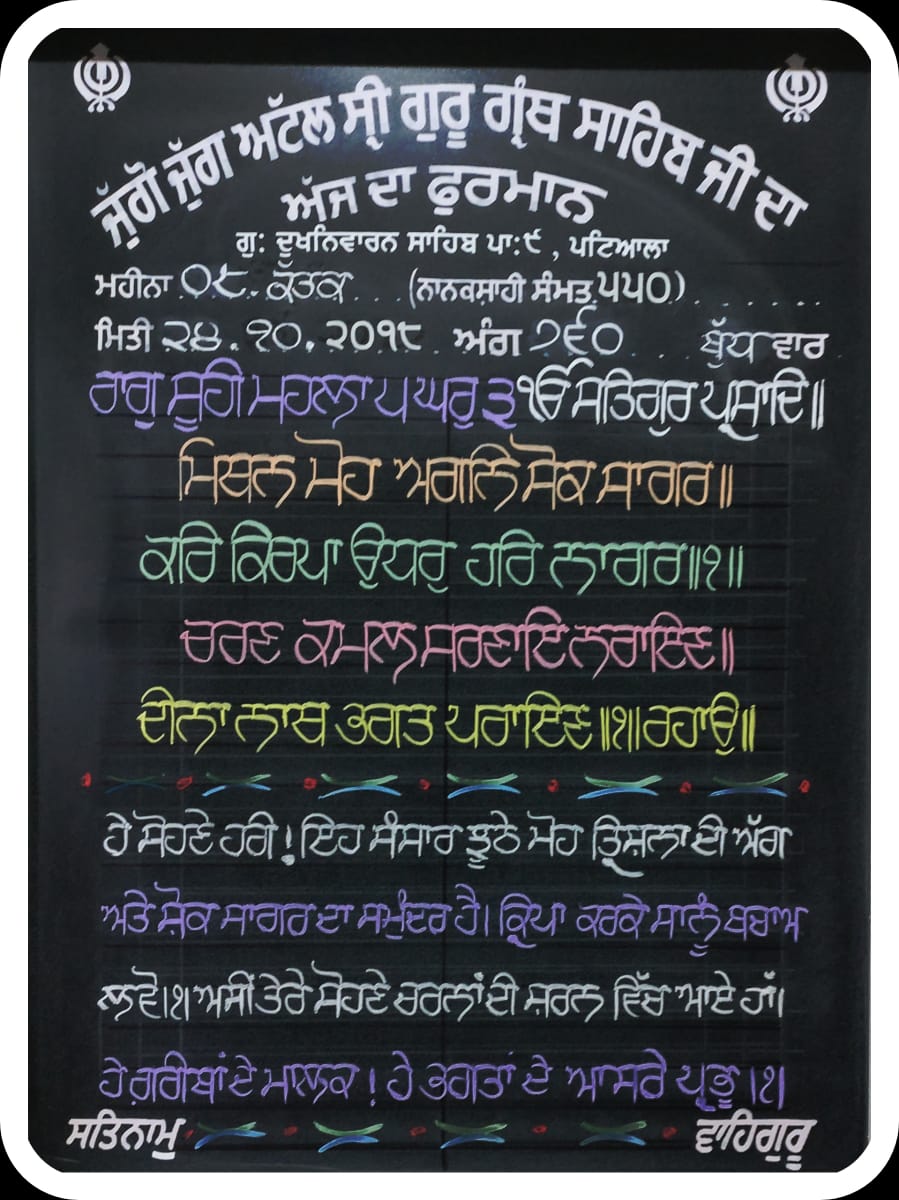 ਜੁੱਗੋ ਜੁੱਗ ਅਟੱਲ ਸ੍ਰੀ ਗੁਰੂ ਗ੍ਰੰਥ ਸਾਹਿਬ ਜੀ ਦਾ
ਅੱਜ ਦਾ ਫੁਰਮਾਨ
ਗੁ: ਦੂਖਨਿਵਾਰਨ ਸਾਹਿਬ ਪਾ:੯ , ਪਟਿਆਲਾ
ਮਹੀਨਾ ੦੮. ਕੱਤਕ... (ਨਾਨਕਸ਼ਾਹੀ ਸੰਮਤ ੫੫੦) . . . . . .
ਮਿਤੀ ੨੪.੧੦.੨੦੧੮ ਅੰਗ ੭੬੦ ... ਬੁੱਧ ਵਾਰ
ਰਾਗੁ ਸੂਹੀ ਮਹਲਾ ੫ ਘਰੁ ੩ ੴ ਸਤਿਗੁਰ ਪ੍ਰਸਾਦਿ॥
ਮਿਥਨ ਮੋਹ ਅਗਨਿ ਸੋਕ ਸਾਗਰ॥
ਕਰਿ ਕਿਰਪਾ ਉਧਰੁ ਹਰਿ ਨਾਗਰ॥੧॥
ਚਰਣ ਕਮਲ ਸਰਣਾਇ ਨਰਾਇਣ॥
ਦੀਨਾ ਨਾਥ ਭਗਤ ਪਰਾਇਣ॥੧॥ਰਹਾਉ॥
ਹੇ ਸੋਹਣੇ ਹਰੀ ! ਇਹ ਸੰਸਾਰ ਝੂਠੇ ਮੋਹ ਤ੍ਰਿਸ਼ਲਾ ਦੀ ਅੱਗ
ਅਤੇ ਸ਼ੋਕ ਸਾਗਰ ਦਾ ਸਮੁੰਦਰ ਹੈ। ਕ੍ਰਿਪਾ ਕਰਕੇ ਸਾਨੂੰ ਬਚਾਅ
ਲਵੋ।੧। ਅਸੀਂ ਤੇਰੇ ਸੋਹਣੇ ਚਰਨਾਂ ਦੀ ਸ਼ਰਨ ਵਿੱਚ ਆਏ ਹਾਂ।
ਹੇ ਗ਼ਰੀਬਾਂ ਦੇ ਮਾਲਕ ! ਹੇ ਭਗਤਾਂ ਦੇ ਆਸਰੇ ਪ੍ਰਭੂ ।੧।
ਸਤਿਨਾਮੁ ਵਾਹਿਗੁਰੂ